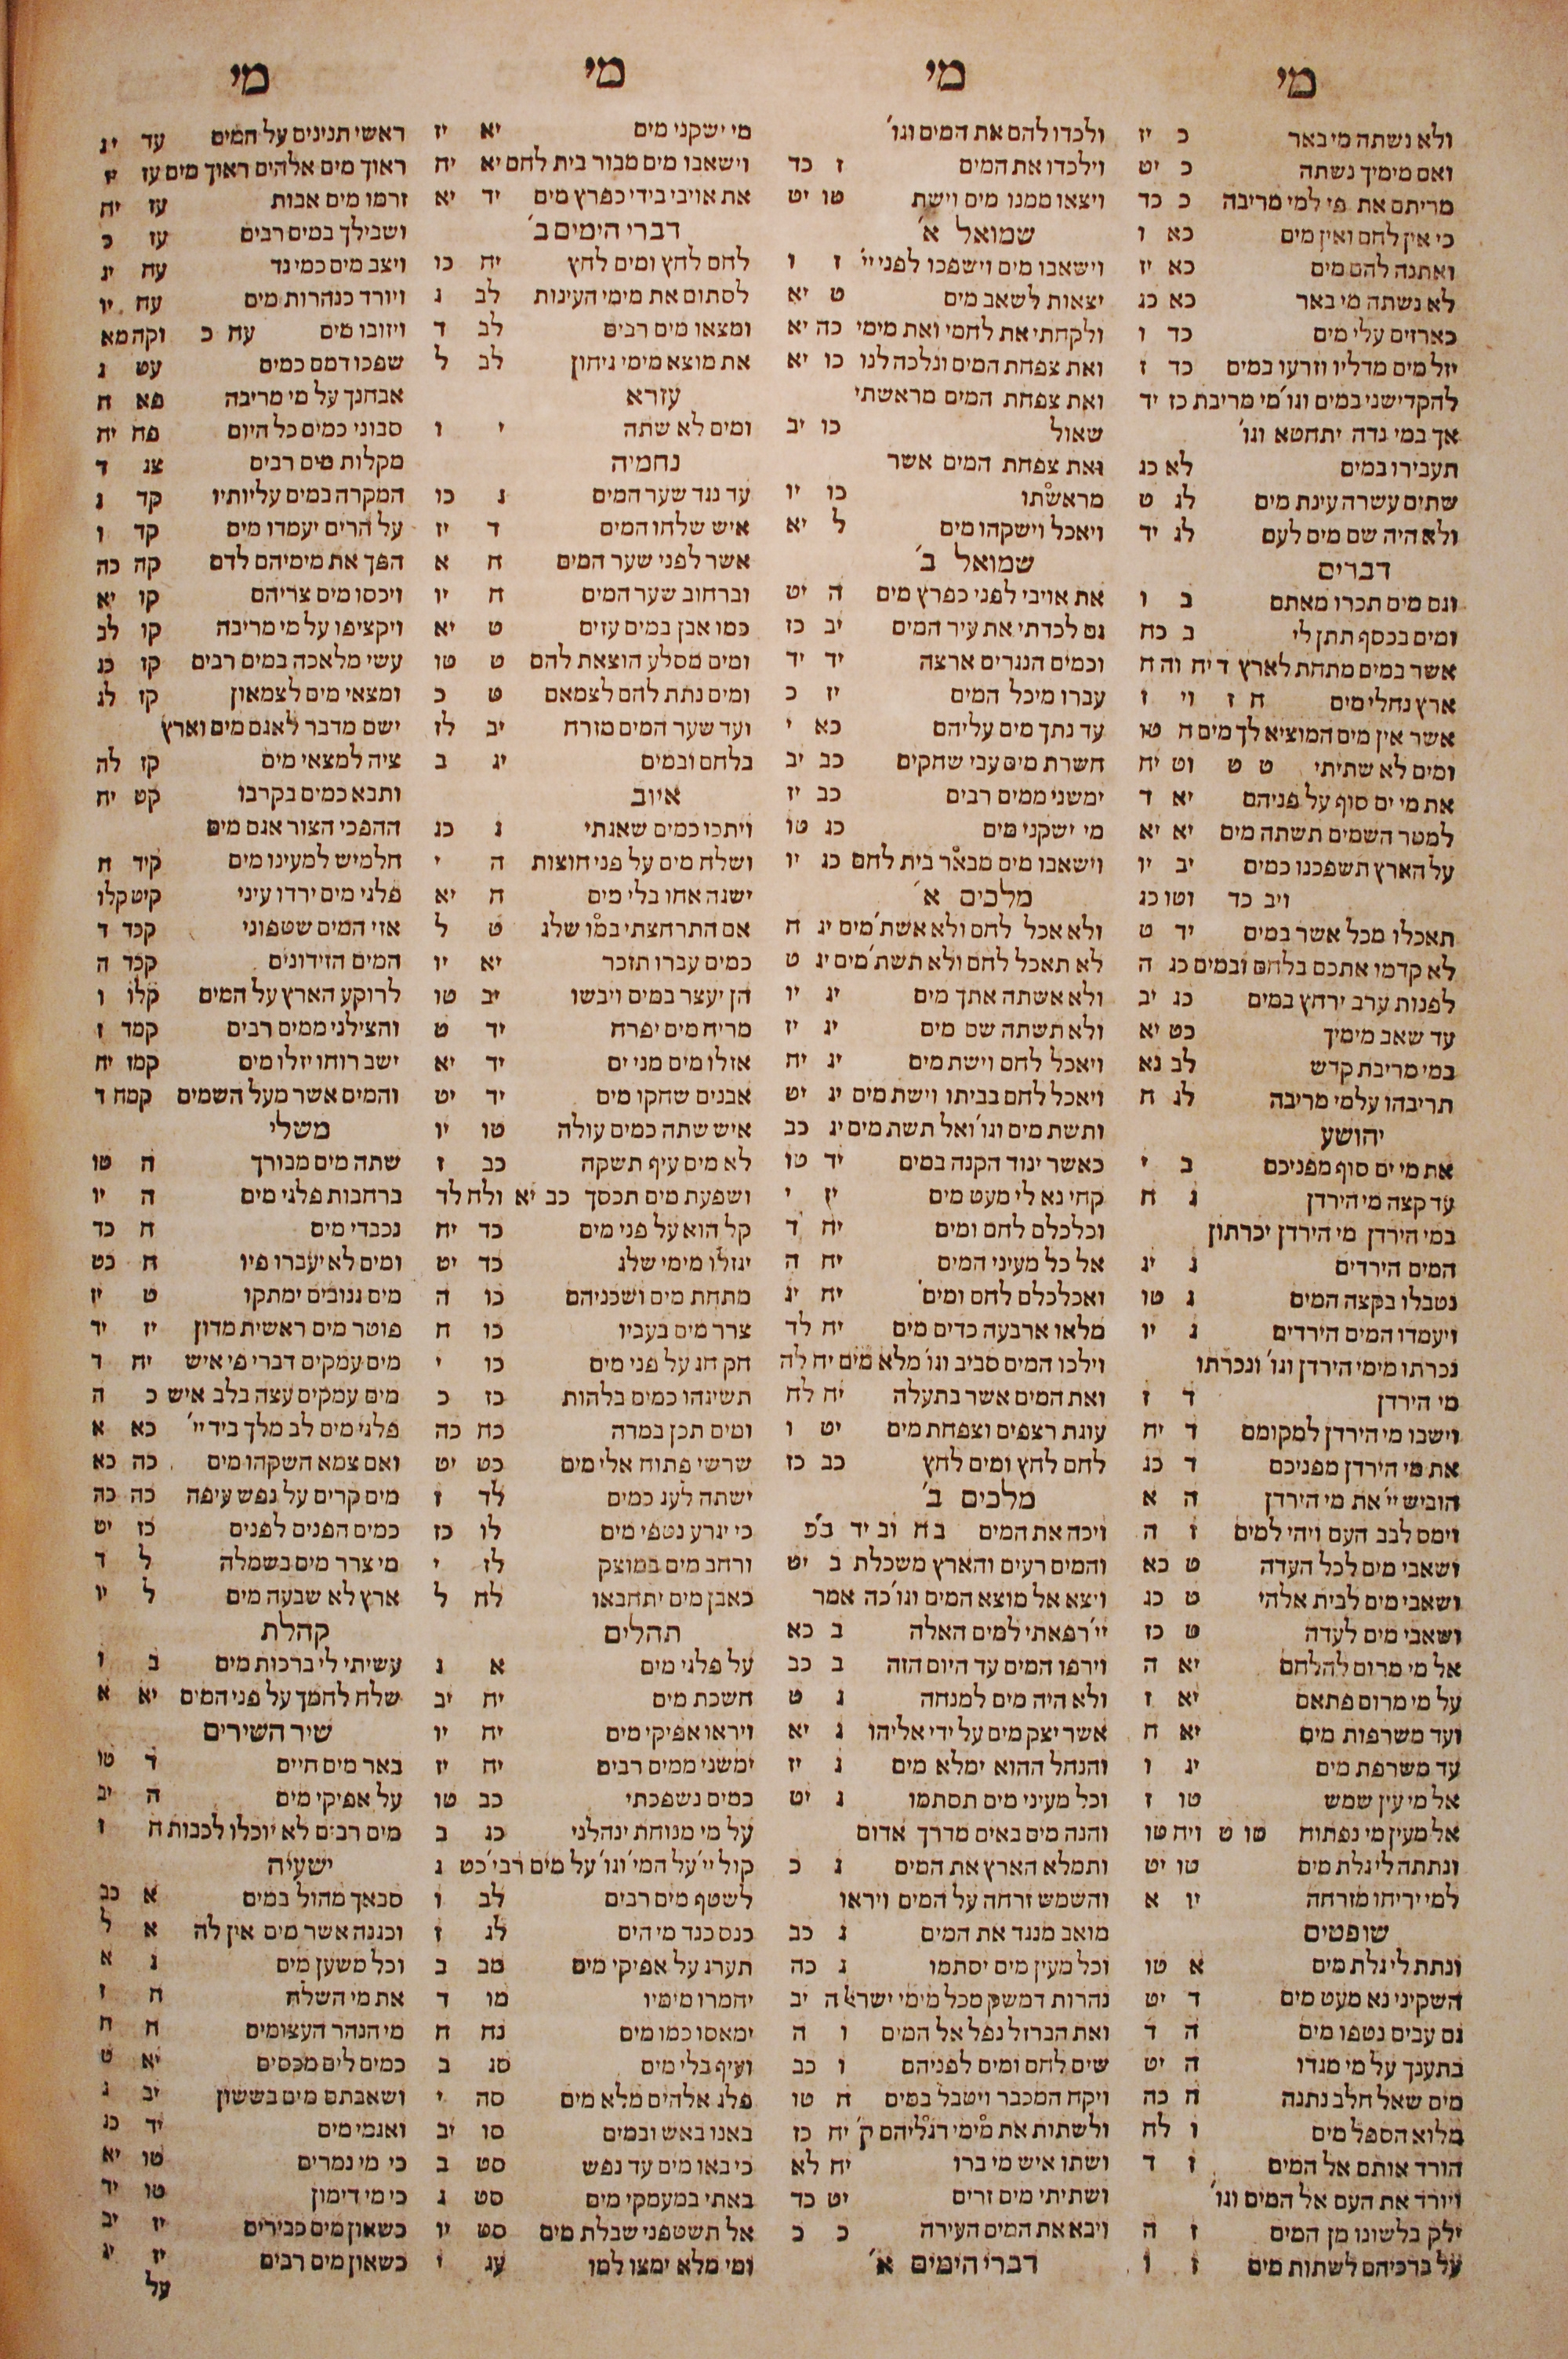 מי מי מי מי
ולא נשתה מי באר כ יז
ואם מימיך נשתה כ יט
מריתם את פי למי מריבה כ כד
כי אין לחם ואין מים כא ו
ואתנה להם מים כא יז
לא נשתה מי באר כא כג
כארזים עלי מים כד ו
יזל מים מדליו וזרעו במים כד ז
להקדישני במים וגו׳ מי מריבת כז יד
אך במי נדה יתחטא וגו׳
תעבירו במים לא כג
שתים עשרה עינת מים לג ט
ולא היה שם מים לעם לג יד
דברים
וגם מים תכרו מאתם ב ו
ומים בכסף תתן לי ב כח
אשר במים מתחת לארץ ד יח וה ח
ארץ נחלי מים ח ז וי ז
אשר אין מים המוציא לך מים ח טו
ומים לא שתיתי ט ט וט יח
את מי ים סוף על פניהם יא ד
למטר השמים תשתה מים יא יא
על הארץ תשפכנו כמים יב יו
ויב כד וטו כג
תאכלו מכל אשר במים יד ט
לא קדמו אתכם בלחם ובמים כג ה
לפנות ערב ירחץ במים כג יב
עד שאב מימיך כט יא
במי מריבת קדש לב נא
תריבהו על מי מריבה לג ח
יהושע
את מי ים סוף מפניכם ב י
עד קצה מי הירדן ג ח
במי הירדן מי הירדן יכרתון
המים הירדים ג יג
נטבלו בקצה המים ג טו
ויעמדו המים הירדים ג יו
נכרתו מימי הירדן וגו׳ ונכרתו
מי הירדן ד ז
וישבו מי הירדן למקומם ד יח
את מי הירדן מפניכם ד כג
הוביש יי׳ את מי הירדן ה א
וימס לבב העם ויהי למים ז ה
ושאבי מים לכל העדה ט כא
ושאבי מים לבית אלהי ט כג
ושאבי מים לעדה ט כז
אל מי מרום להלחם יא ה
על מי מרום פתאם יא ז
ועד משרפות מים יא ח
עד משרפת מים יג ו
אל מי עין שמש טו ז
אל מעין מי נפתוח טו ט ויח טו
ונתתה לי גלת מים טו יט
למי יריחו מזרחה יו א
שופטים
ונתת לי גלת מים א טו
השקיני נא מעט מים ד יט
גם עבים נטפו מים ה ד
בתענך על מי מגדו ה יט
מים שאל חלב נתנה ה כה
מלוא הספל מים ו לח
הורד אותם אל המים ז ד
ויורד את העם אל המים וגו׳
ילק בלשונו מן המים ז ה
על ברכיהם לשתות מים ז ו
ולכדו להם את המים וגו׳
וילכדו את המים ז כד
ויצאו ממנו מים וישת טו יט
שמואל א׳
וישאבו מים וישפכו לפני יי׳ ז ו
יצאות לשאב מים ט יא
ולקחתי את לחמי ואת מימי כה יא
ואת צפחת המים ונלכה לנו כו יא
ואת צפחת המים מראשתי
שאול כו יב
ואת צפחת המים אשר
מראשתו כו יו
ויאכל וישקהו מים ל יא
שמואל ב׳
את אויבי לפני כפרץ מים ה יט
גם לכדתי את עיר המים יב כז
וכמים הנגרים ארצה יד יד
עברו מיכל המים יז כ
עד נתך מים עליהם כא י
חשרת מים עבי שחקים כב יב
ימשני ממים רבים כב יז
מי ישקני מים כג טו
וישאבו מים מבאר בית לחם כג יו
מלכים א׳
ולא אכל לחם ולא אשת׳ מים יג ח
לא תאכל לחם ולא תשת׳ מים יג ט
ולא אשתה אתך מים יג יו
ולא תשתה שם מים יג יז
ויאכל לחם וישת מים יג יח
ויאכל לחם בביתו וישת מים יג יט
ותשת מים וגו׳ ואל תשת מים יג כב
כאשר ינוד הקנה במים יד טו
קחי נא לי מעט מים יז י
וכלכלם לחם ומים יח ד
אל כל מעיני המים יח ה
ואכלכלם לחם ומים יח יג
מלאו ארבעה כדים מים יח לד
וילכו המים סביב וגו׳ מלא מים יח לה
ואת המים אשר בתעלה יח לח
עוגת רצפים וצפחת מים יט ו
לחם לחץ ומים לחץ כב כז
מלכים ב׳
ויכה את המים ב ח וב יד ב״פ
והמים רעים והארץ משכלת ב יט
ויצא אל מוצא המים וגו׳ כה אמר
יי׳ רפאתי למים האלה ב כא
וירפו המים עד היום הזה ב כב
ולא היה מים למנחה ג ט
אשר יצק מים על ידי אליהו ג יא
והנחל ההוא ימלא מים ג יז
וכל מעיני מים תסתמו ג יט
והנה מים באים מדרך אדום
ותמלא הארץ את המים ג כ
והשמש זרחה על המים ויראו
מואב מנגד את המים ג כב
וכל מעין מים יסתמו ג כה
נהרות דמשק מכל מימי ישראל ה יב
ואת הברזל נפל אל המים ו ה
שים לחם ומים לפניהם ו כב
ויקח המכבר ויטבל במים ח טו
ולשתות את מימי רגליהם ק׳ יח כז
ושתו איש מי ברו יח לא
ושתיתי מים זרים יט כד
ויבא את המים העירה כ כ
דברי הימים א׳
מי ישקני מים יא יז
וישאבו מים מבור בית לחם יא יח
את אויבי בידי כפרץ מים יד יא
דברי הימים ב׳
לחם לחץ ומים לחץ יח כו
לסתום את מימי העינות לב ג
ומצאו מים רבים לב ד
את מוצא מימי גיחון לב ל
עזרא
ומים לא שתה י ו
נחמיה
עד נגד שער המים ג כו
איש שלחו המים ד יז
אשר לפני שער המים ח א
וברחוב שער המים ח יו
כמו אבן במים עזים ט יא
ומים מסלע הוצאת להם ט טו
ומים נתת להם לצמאם ט כ
ועד שער המים מזרח יב לז
בלחם ובמים יג ב
איוב
ויתכו כמים שאגתי ג כג
ושלח מים על פני חוצות ה י
ישגה אחו בלי מים ח יא
אם התרחצתי במו שלג ט ל
כמים עברו תזכר יא יו
הן יעצר במים ויבשו יב טו
מריח מים יפרח יד ט
אזלו מים מני ים יד יא
אבנים שחקו מים יד יט
איש שתה כמים עולה טו יו
לא מים עיף תשקה כב ז
ושפעת מים תכסך כב יא ולח לד
קל הוא על פני מים כד יח
יגזלו מימי שלג כד יט
מתחת מים ושכניהם כו ה
צרר מים בעביו כו ח
חק חג על פני מים כו י
תשיגהו כמים בלהות כז כ
ומים תכן במדה כח כה
שרשי פתוח אלי מים כט יט
ישתה לעג כמים לד ז
כי יגרע נטפי מים לו כז
ורחב מים במוצק לז י
כאבן מים יתחבאו לח ל
תהלים
על פלגי מים א ג
חשכת מים יח יב
ויראו אפיקי מים יח יו
ימשני ממים רבים יח יז
כמים נשפכתי כב טו
על מי מנוחת ינהלני כג ב
קול יי׳ על המי׳ וגו׳ על מים רבי׳ כט ג
לשטף מים רבים לב ו
כנס כנד מי הים לג ז
תערג על אפיקי מים מב ב
יחמרו מימיו מו ד
ימאסו כמו מים נח ח
ועיף בלי מים סג ב
פלג אלהים מלא מים סה י
באנו באש ובמים סו יב
כי באו מים עד נפש סט ב
באתי במעמקי מים סט ג
אל תשטפני שבלת מים סט יו
ומי מלא ימצו למו עג י
ראשי תנינים על המים עד יג
ראוך מים אלהים ראוך מים עז יז
זרמו מים אבות עז יח
ושבילך במים רבים עז כ
ויצב מים כמי נד עח יג
ויורד כנהרות מים עח יו
ויזובו מים עח כ וקה מא
שפכו דמם כמים עט ג
אבחנך על מי מריבה פא ח
סבוני כמים כל היום פח יח
מקלות מים רבים צג ד
המקרה במים עליותיו קד ג
על הרים יעמדו מים קד ו
הפך את מימיהם לדם קה כה
ויכסו מים צריהם קו יא
ויקציפו על מי מריבה קו לב
עשי מלאכה במים רבים קז כג
ומצאי מים לצמאון קז לג
ישם מדבר לאגם מים וארץ
ציה למצאי מים קז לה
ותבא כמים בקרבו קט יח
ההפכי הצור אגם מים
חלמיש למעינו מים קיד ח
פלגי מים ירדו עיני קיט קלו
אזי המים שטפוני קכד ד
המים הזידונים קכד ה
לרוקע הארץ על המים קלו ו
והצילני ממים רבים קמד ז
ישב רוחו יזלו מים קמז יח
והמים אשר מעל השמים קמח ד
משלי
שתה מים מבורך ה טו
ברחבות פלגי מים ה יו
נכבדי מים ח כד
ומים לא יעברו פיו ח כט
מים גנובים ימתקו ט יז
פוטר מים ראשית מדון יז יד
מים עמקים דברי פי איש יח ד
מים עמקים עצה בלב איש כ ה
פלגי מים לב מלך ביד יי׳ כא א
ואם צמא השקהו מים כה כא
מים קרים על נפש עיפה כה כה
כמים הפנים לפנים כז יט
מי צרר מים בשמלה ל ד
ארץ לא שבעה מים ל יו
קהלת
עשיתי לי ברכות מים ב ו
שלח לחמך על פני המים יא א
שיר השירים
באר מים חיים ד טו
על אפיקי מים ה יב
מים רבים לא יוכלו לכבות ח ז
ישעיה
סבאך מהול במים א כב
וכגנה אשר מים אין לה א ל
וכל משען מים ג א
את מי השלח ח ז
מי הנהר העצומים ח ח
כמים לים מכסים יא ט
ושאבתם מים בששון יב ג
ואגמי מים יד כג
כי מי נמרים טו יא
כי מי דימון טו יד
כשאון מים כבירים יז יב
כשאון מים רבים יז יג
על